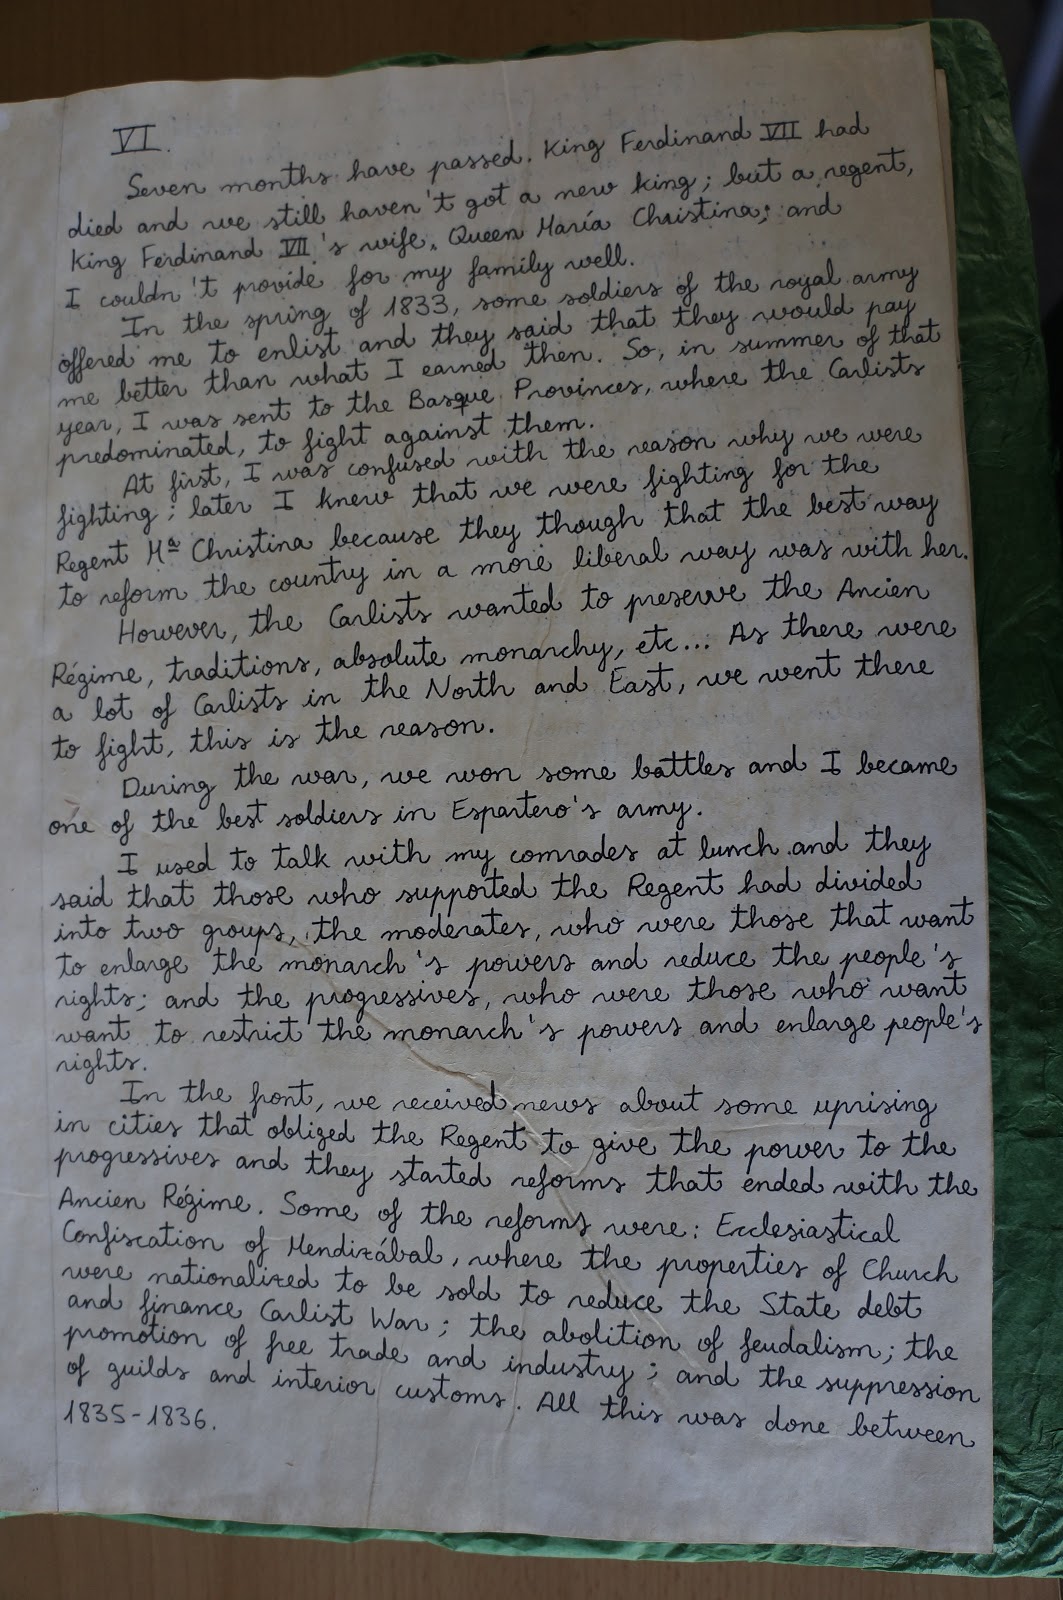 VI.
Seven months have passed. King Ferdinand VII had
died and we still haven't got a new king; but a regent,
King Ferdinand VII's wife, Queen María Christina; and
I couldn't provide for my family well.
In the spring of 1833, some soldiers of the royal army
offered me to enlist and they said that they would pay
me better than what I earned then. So, in summer of that
year, I was sent to the Basque Provinces, where the Carlists
predominated, to fight against them.
At first, I was confused with the reason why we were
fighting; later I knew that we were fighting for the
Regent Mª Christina because they though that the best way
to reform the country in a more liberal way was with her.
However, the Carlists wanted to preserve the Ancien
Régime, traditions, absolute monarchy, etc... As there were
a lot of Carlists in the North and East, we went there
to fight, this is the reason.
During the war, we won some battles and I became
one of the best soldiers in Espartero's army.
I used to talk with my comrades at lunch and they
said that those who supported the Regent had divided
into two groups, the moderates, who were those that want
to enlarge the monarch's powers and reduce the people's
rights; and the progressives, who were those who want
want to restrict the monarch's powers and enlarge people's
rights.
In the front, we received news about some uprising
in cities that obliged the Regent to give the power to the
progressives and they started reforms that ended with the
Ancien Régime. Some of the reforms were: Ecclesiastical
Confiscation of Mendizábal, where the properties of Church
were nationalized to be sold to reduce the State debt
and finance Carlist War; the abolition of feudalism; the
promotion of free trade and industry; and the suppression
of guilds and interior customs. All this was done between
1835-1836.